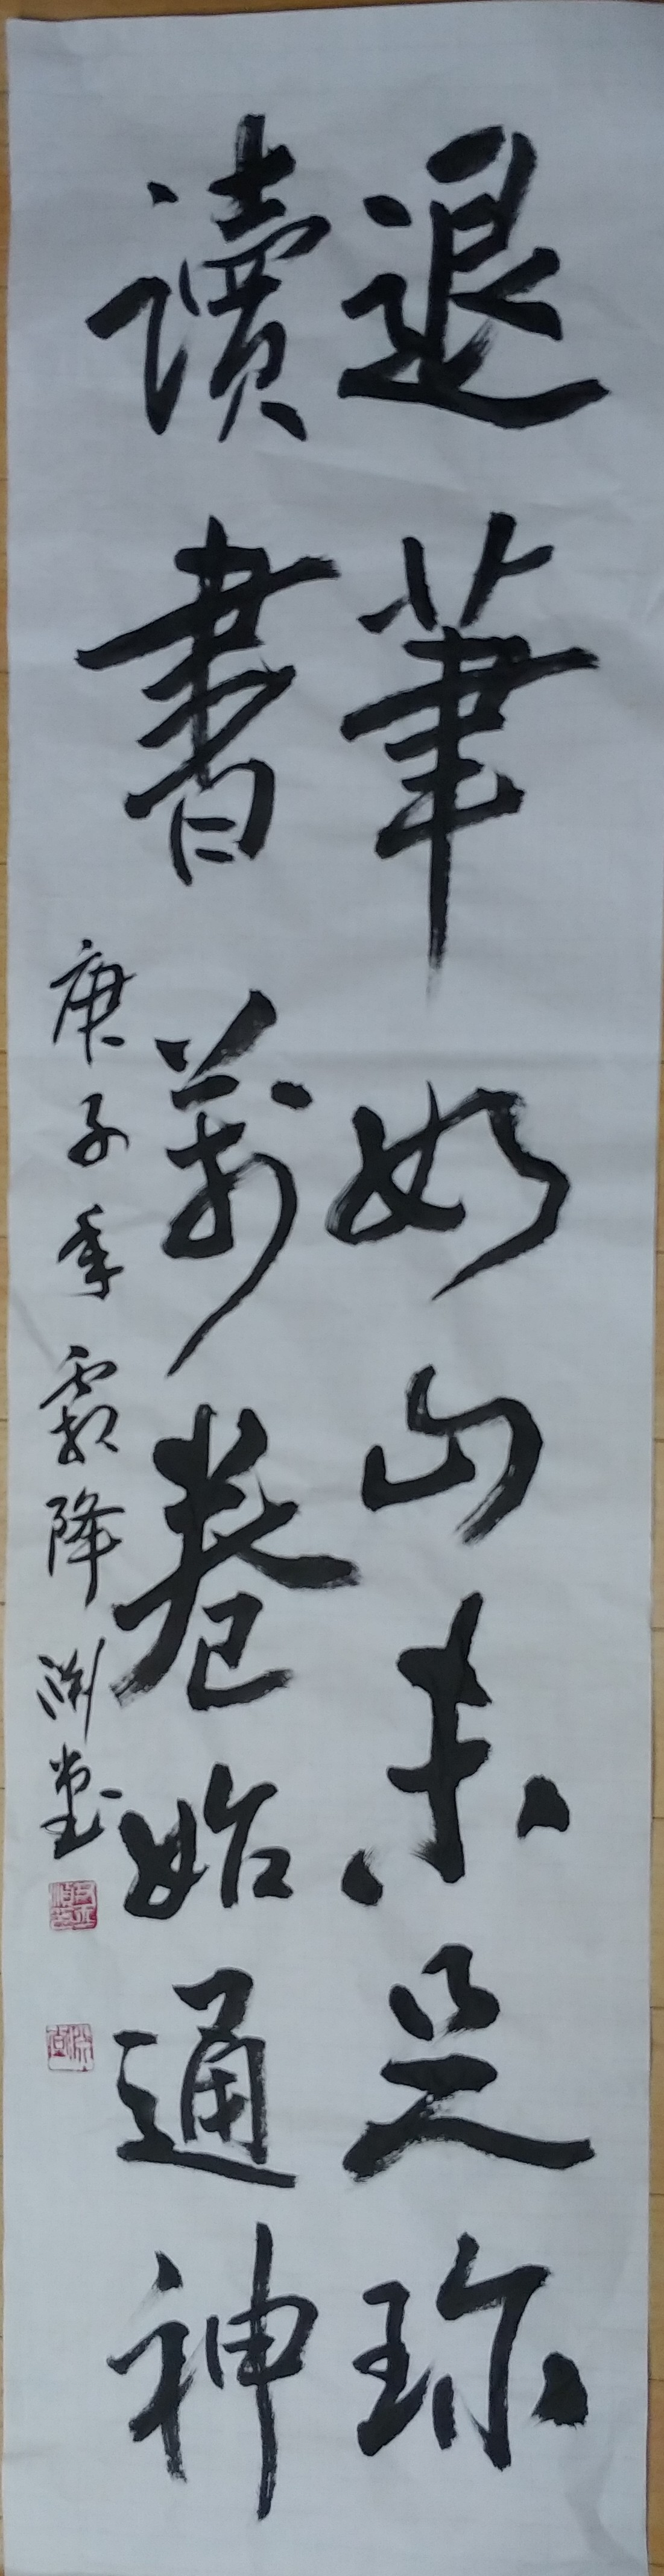 退筆如山未足珎
讀書萬卷始通神
庚子季霜降 淵堂